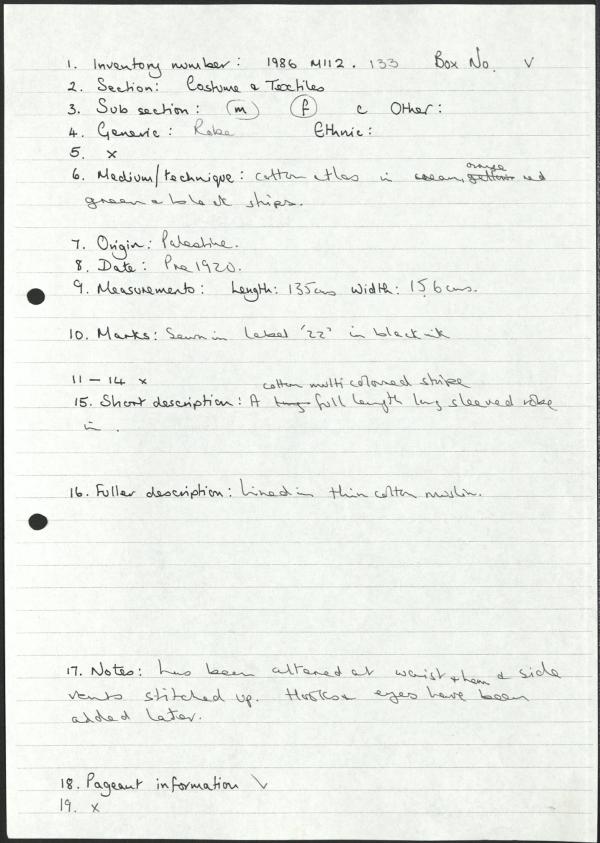 1. Inventory number: 1986 M112 . 133 Box No. V
2. Section: Costume & Textiles
3. Sub section: m f c Other:
4. Generic: Robe Ethnic:
5. x
6. Medium/technique: cotton atlas in cream, yellow orange red
green & black stripes.
7. Origin: Palestine.
8. Date: Pre 1920.
9. Measurements: Length: 135cms Width: 156cms.
10. Marks: Sewn in label '22' in black ink
11 – 14 x
cotton multi coloured stripe
15. Short description: A long full length long sleeved robe
in .
16. Fuller description: Lined in thin cotton muslin.
17. Notes: has been altered at waist & hem & side
vents stitched up. Hooks & eyes have been
added later.
18. Pageant information V
19. x